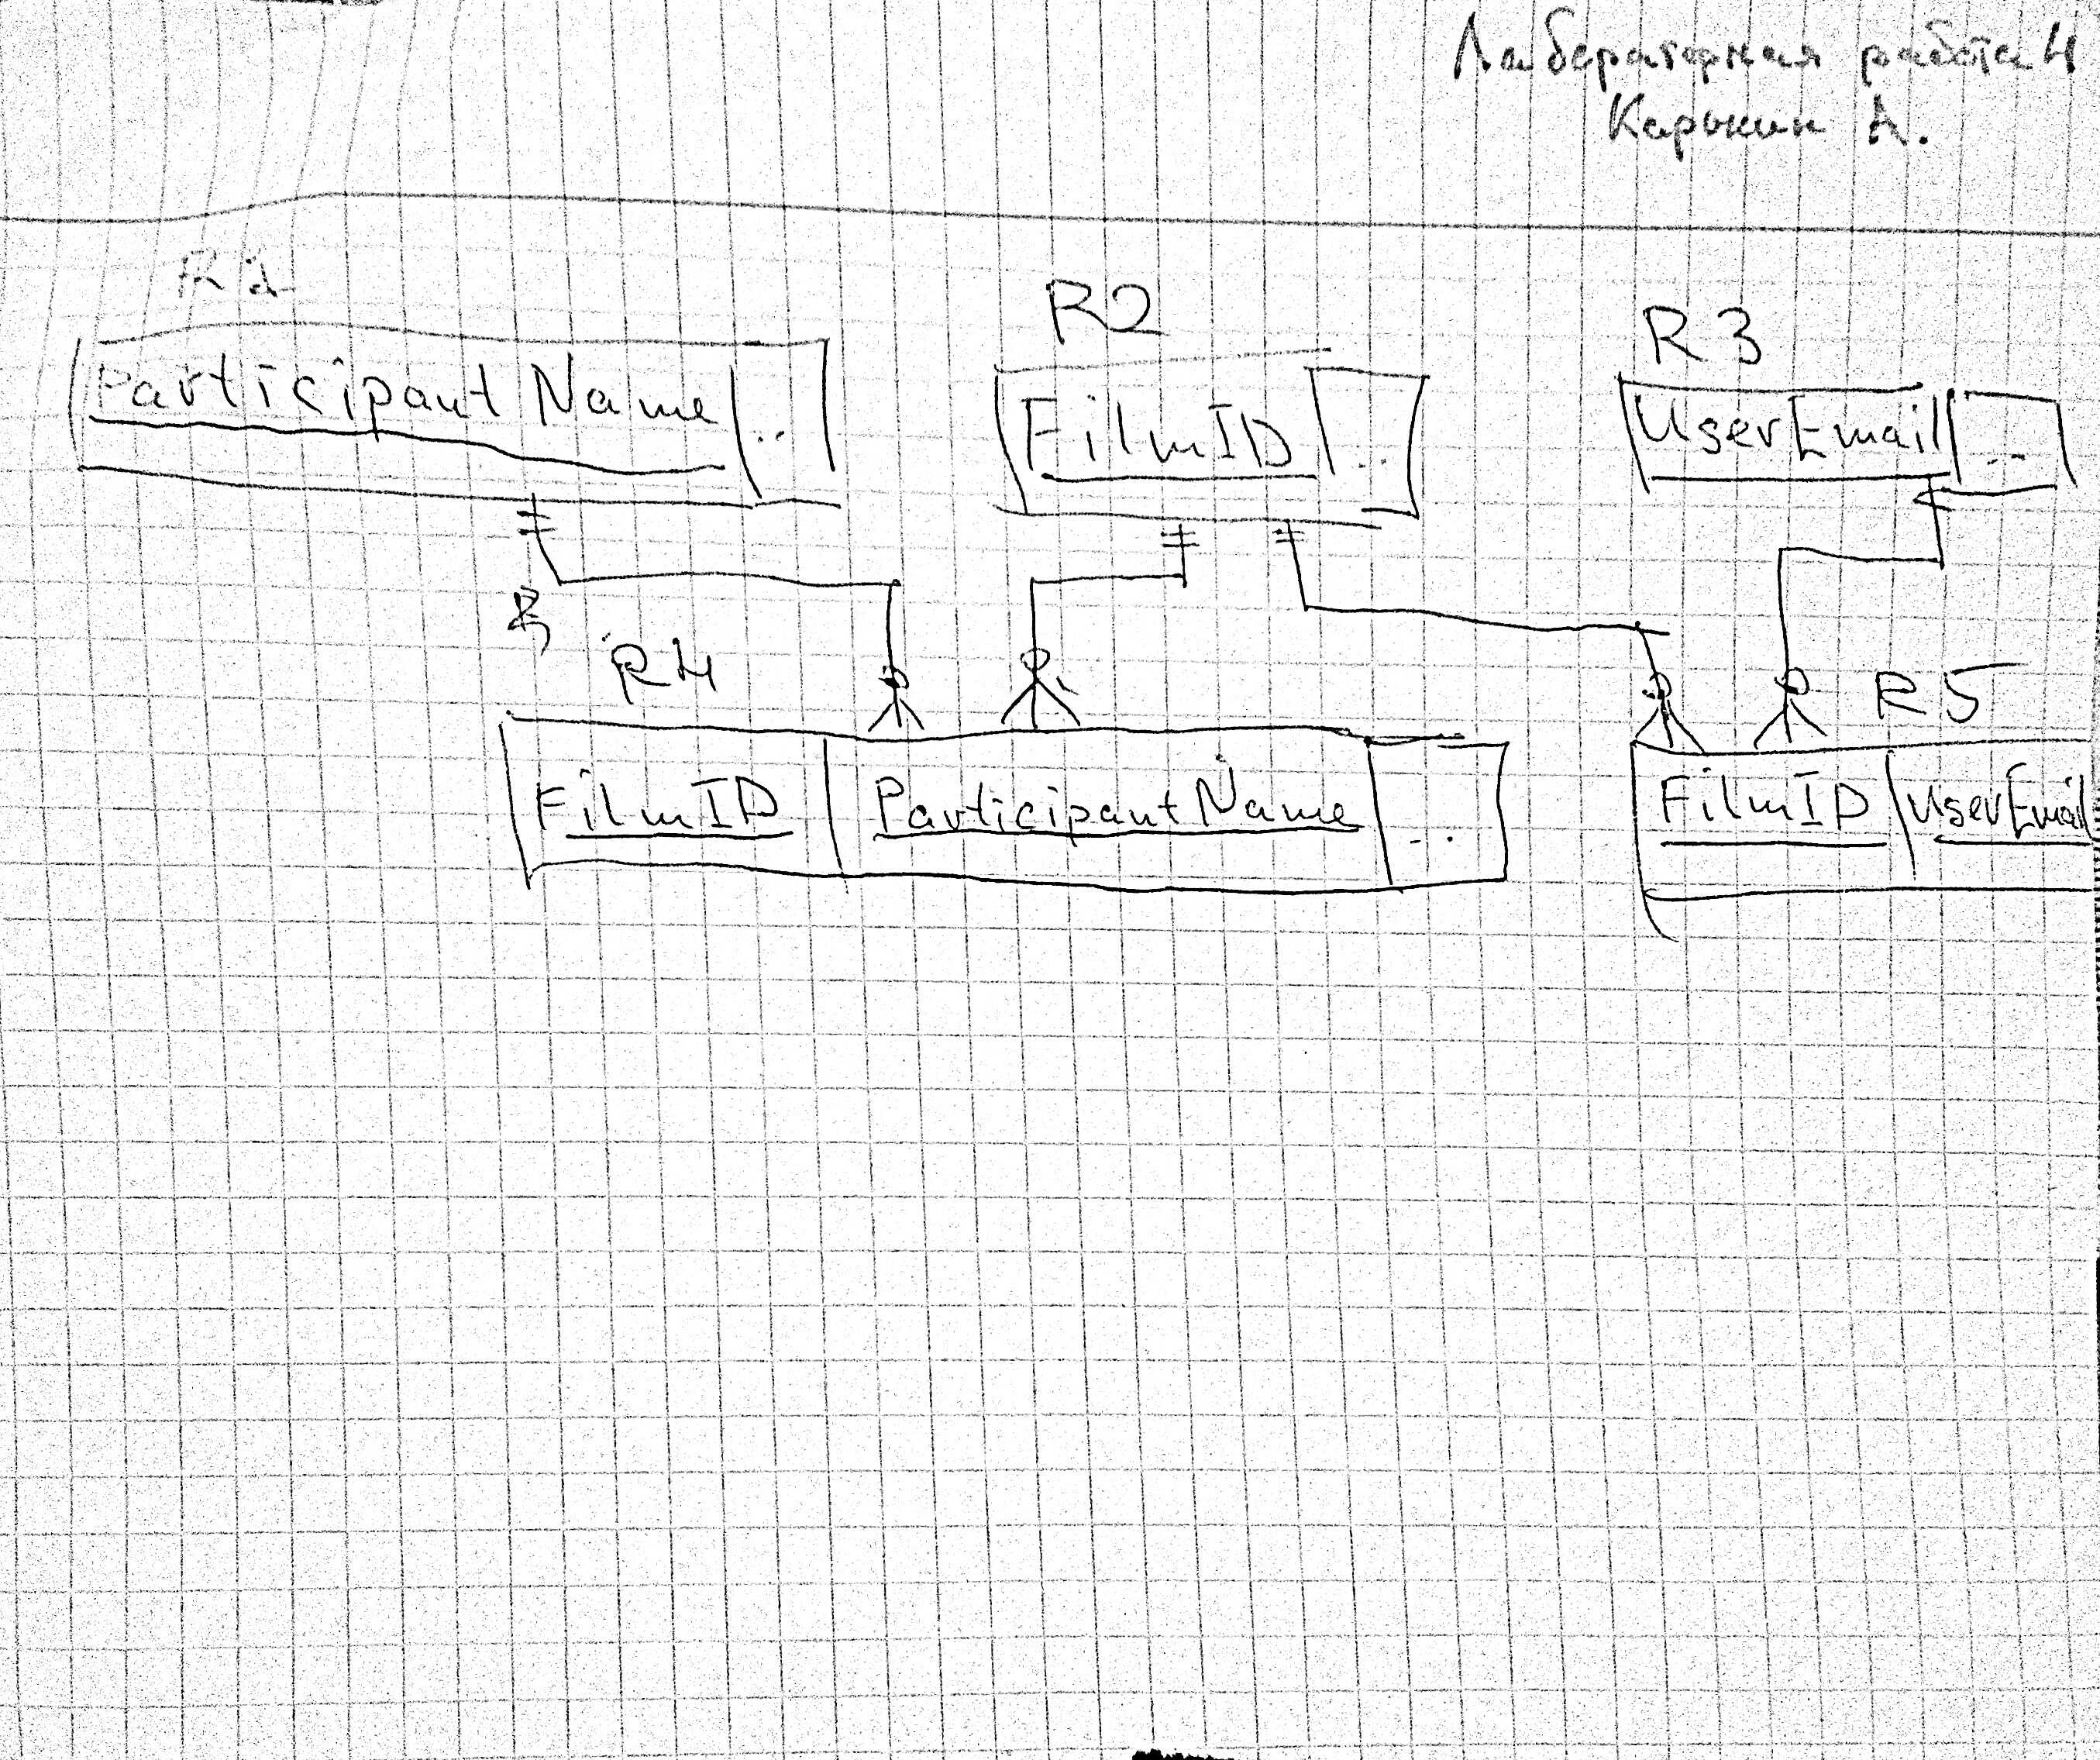 Лабораторная работа 4
Карькин А.
R1
R2
R3
ParticipantName ..
FilmID ..
UserEmail ..
R4
R5
FilmID ParticipantName ..
FilmID UserEmail